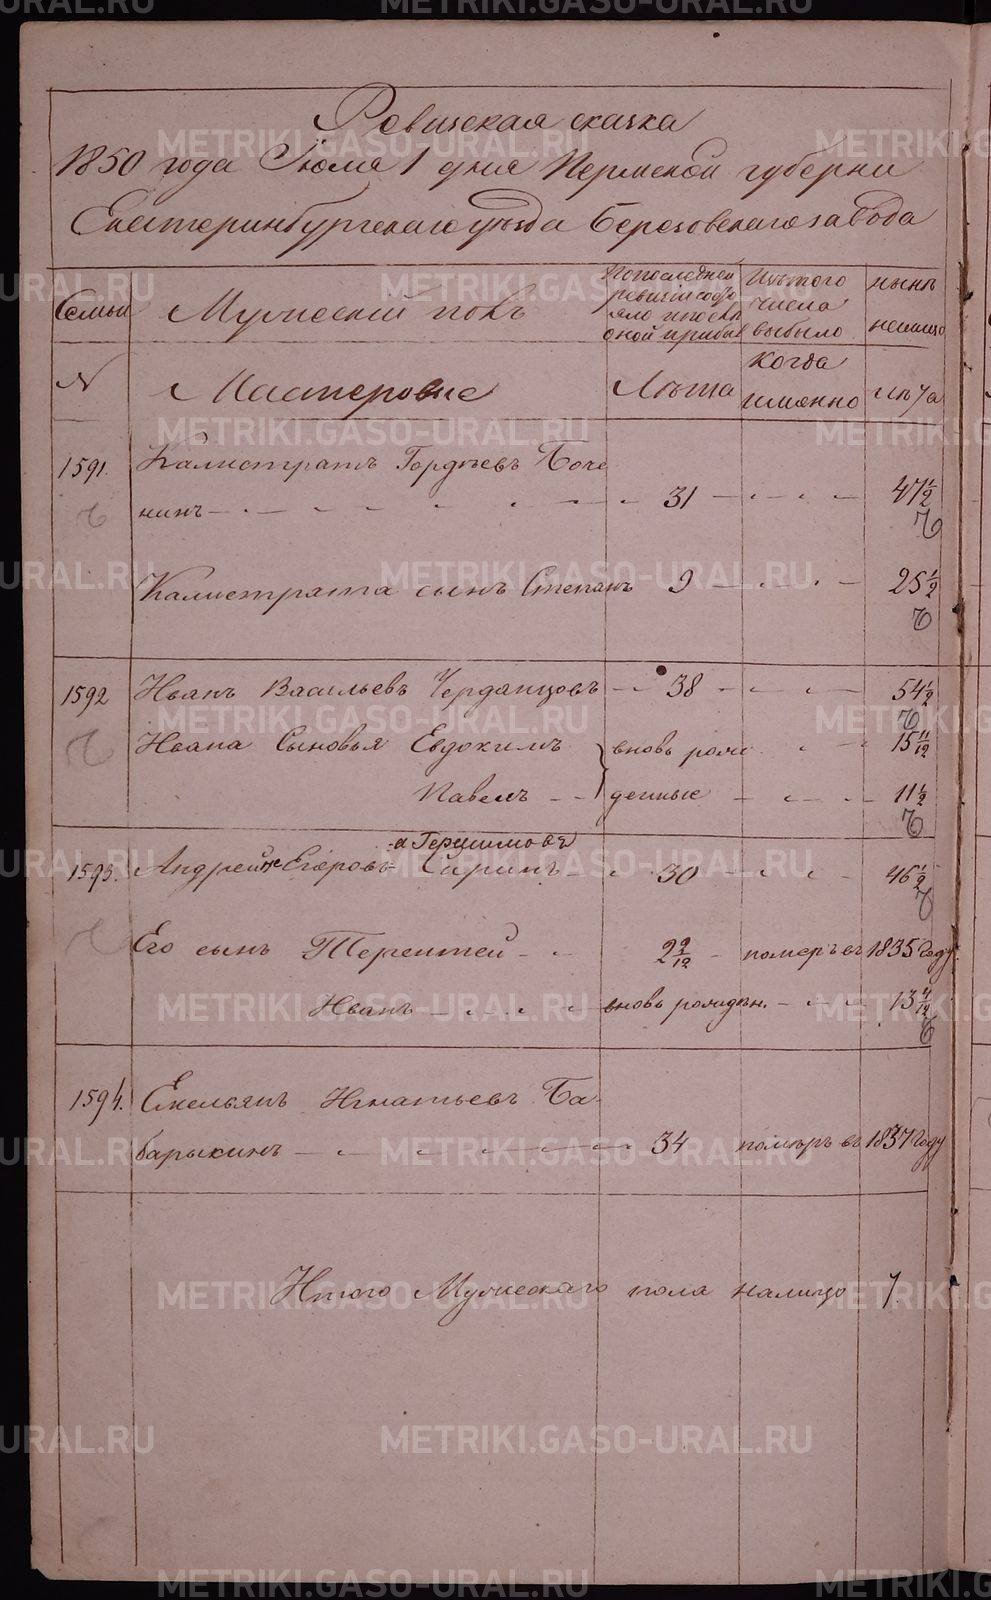 Ревизская сказка
1850 года Июля 1 дня Пермской губерни
Екатеринбургскаго уѣзда Березовскаго завода
Семьи
Мужескій полъ
По последней
ревизіи состо
яло и после
оной прибы
Изъ того
числа
выбыло
нынѣ
налицо
N
Мастеровые
Лѣта
когда
имянно
лѣта
1591. Калистратъ Гордѣевъ Боче
нинъ 31 47 1/2
Калистрата сынъ Степанъ 9 25 1/2
1592 Иванъ Васильевъ Черданцовъ 38 54 1/2
Ивана Сыновья Евдокимъ вновь рож 15 11/12
Павелъ денные 11 1/2
а Герасимовъ
1593. Андрей Егоровъ Сиринъ 30 46 1/2
Его сынъ Терентей 2 9/12 померъ въ 1835 году
Иванъ вновь рожден. 13 4/12
1594. Емельянъ Игнатьевъ Ба
барыкинъ 34 помѣръ въ 1837 году
Итого Мужескаго пола налицо 7.
METRIKI.GASO-URAL.RU